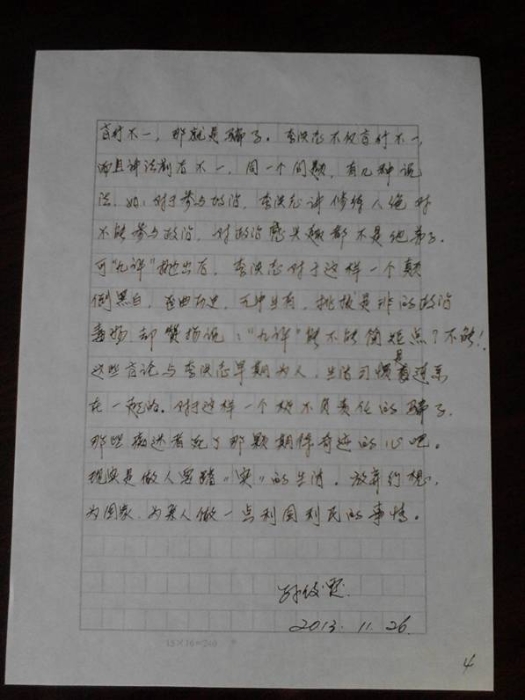 言行不一，那就是骗子。李洪志不仅言行不一，
而且讲法前后不一，同一个问题，有几种说
法。如：对于参与政治，李洪志讲修炼人绝对
不能参与政治，对政治感兴趣都不是他弟子。
可“九评”抛出后，李洪志对于这样一个颠
倒黑白、歪曲历史、无中生有、挑拨是非的政治
毒物却赞扬说：“九评”能不能简短点？不能！
这些言论与李洪志早期为人、生活习惯是连系
在一起的。对这样一个极不负责任的骗子，
那些痴迷者死了那颗期待奇迹的心吧。
现实是做人要踏“实”的生活，放弃幻想，
为国家、为家人做一点利国利民的事情。
2013.11.26.
15×16=240
4